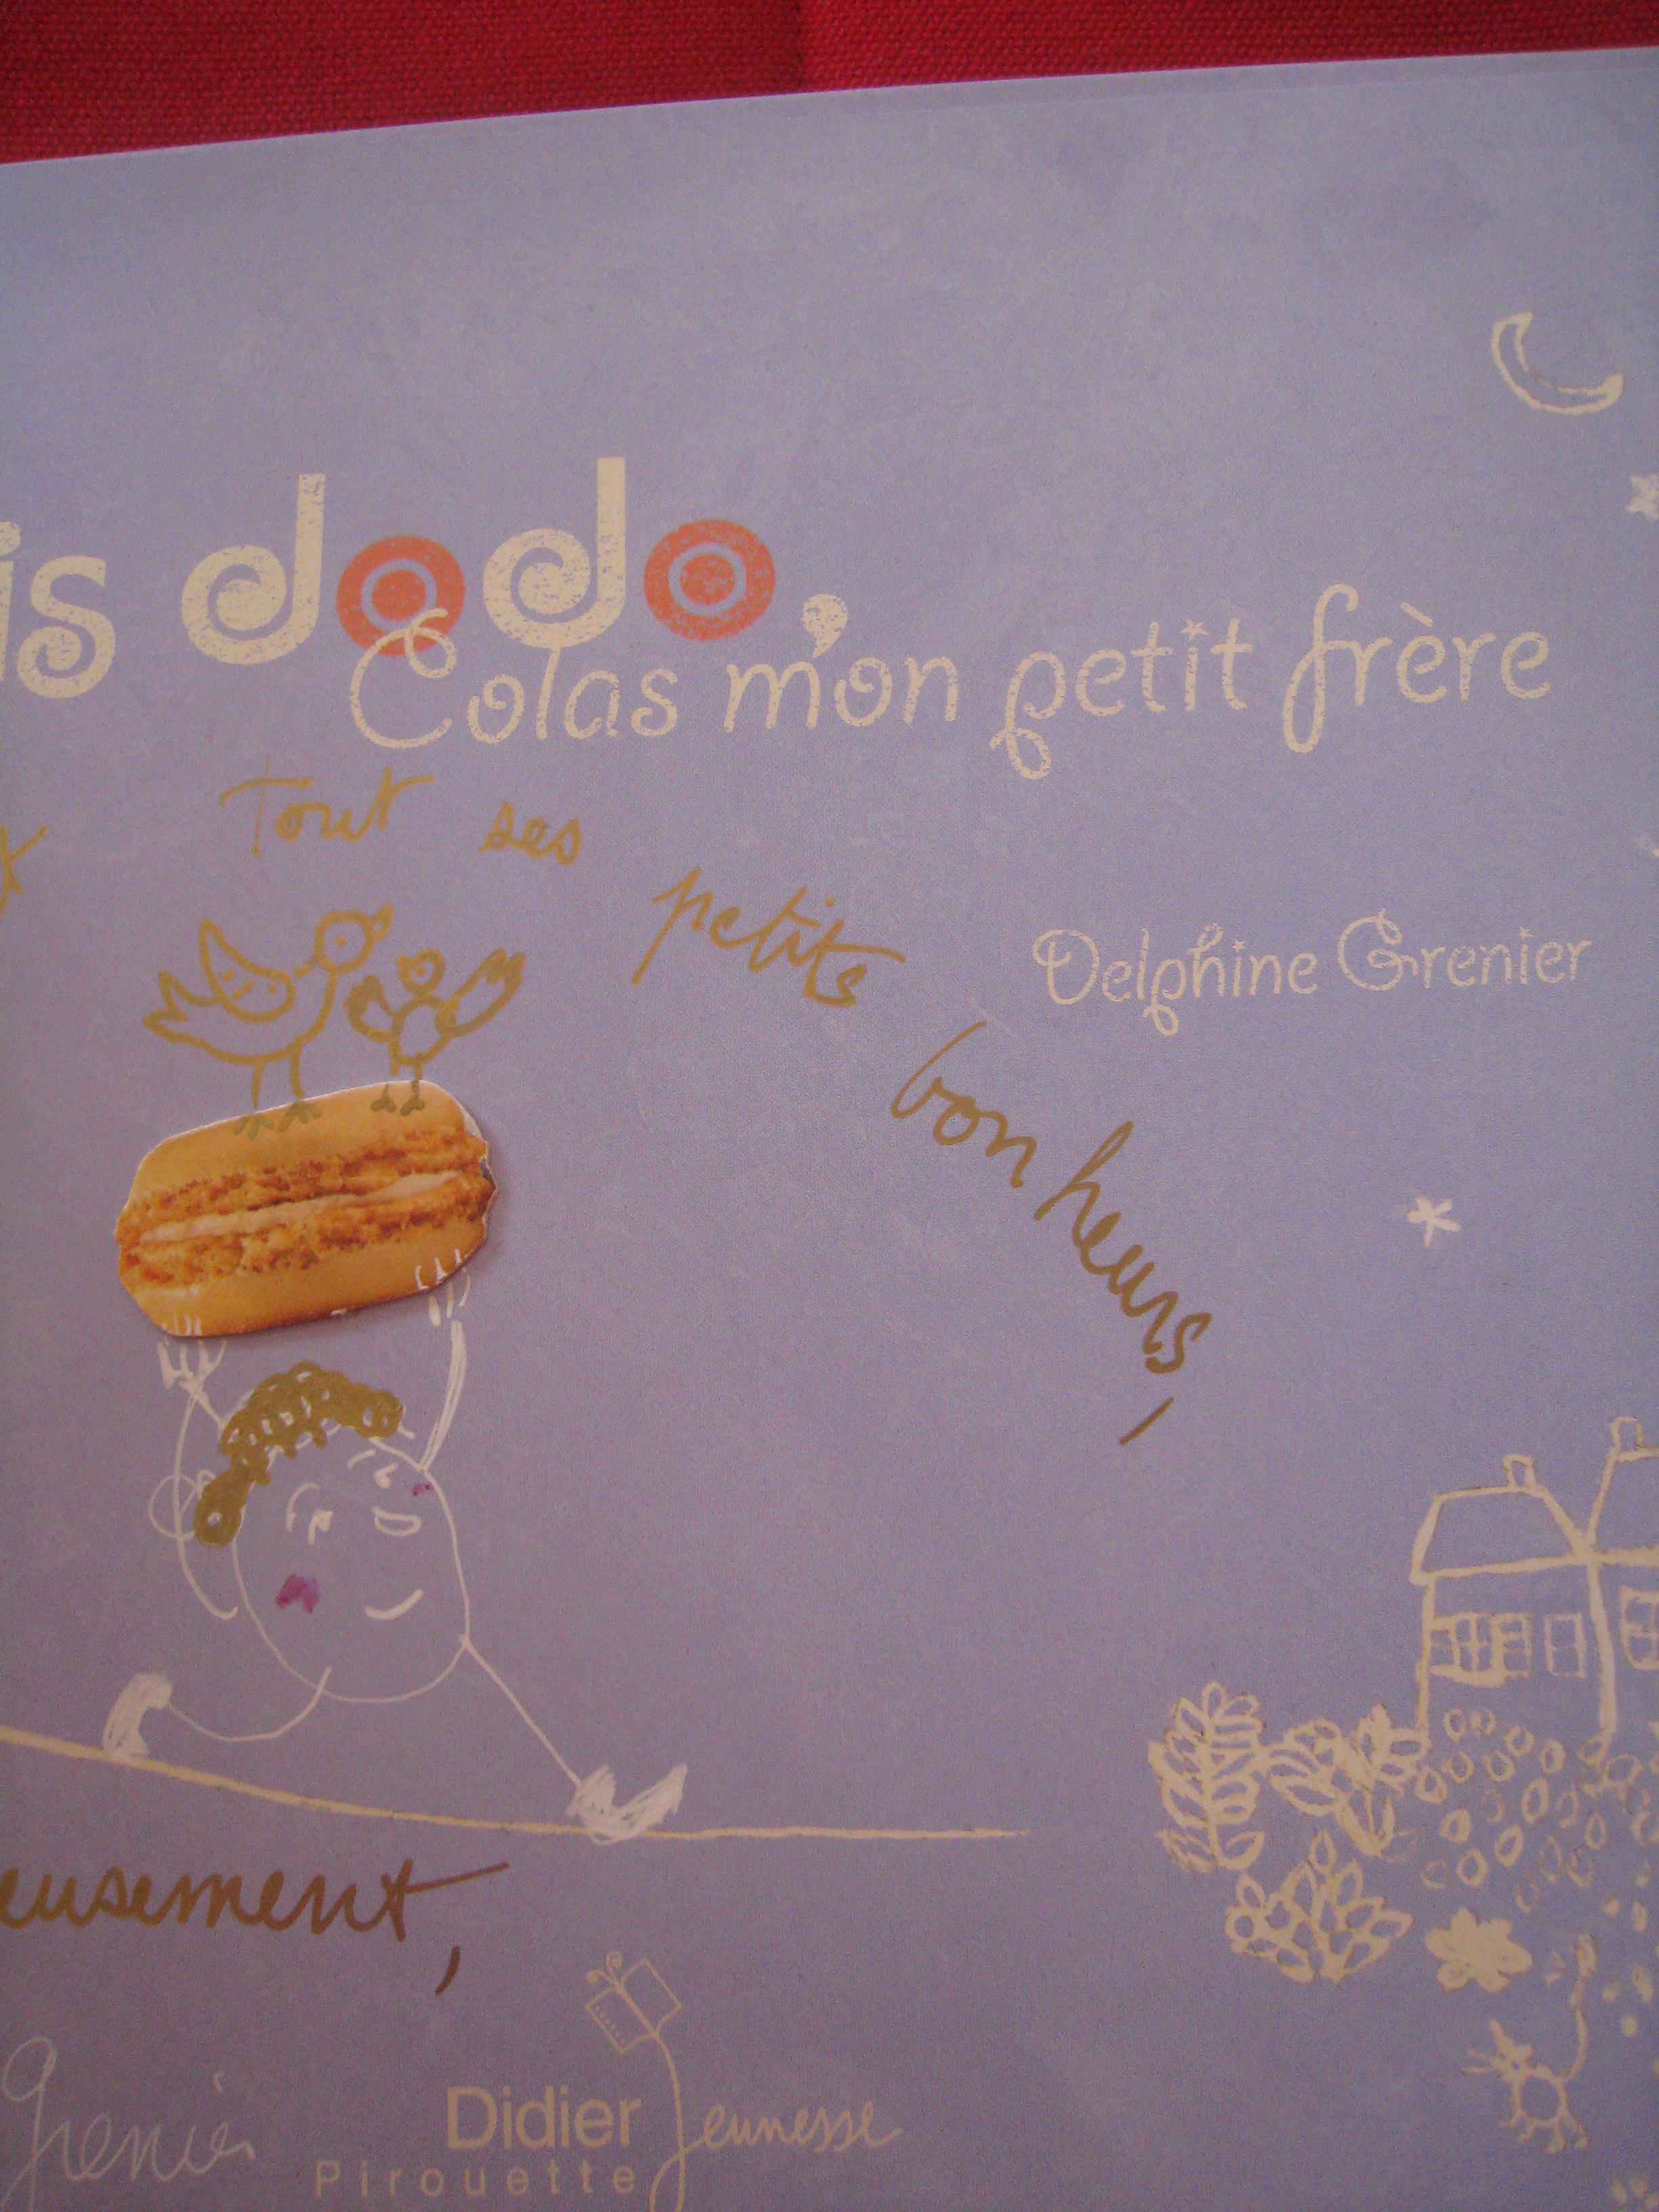 is dodo,
Colas mon petit frère
Tout ses petits bonheurs,
Delphine Grenier
eusement,
Grenier
Didier Jeunesse
Pirouette